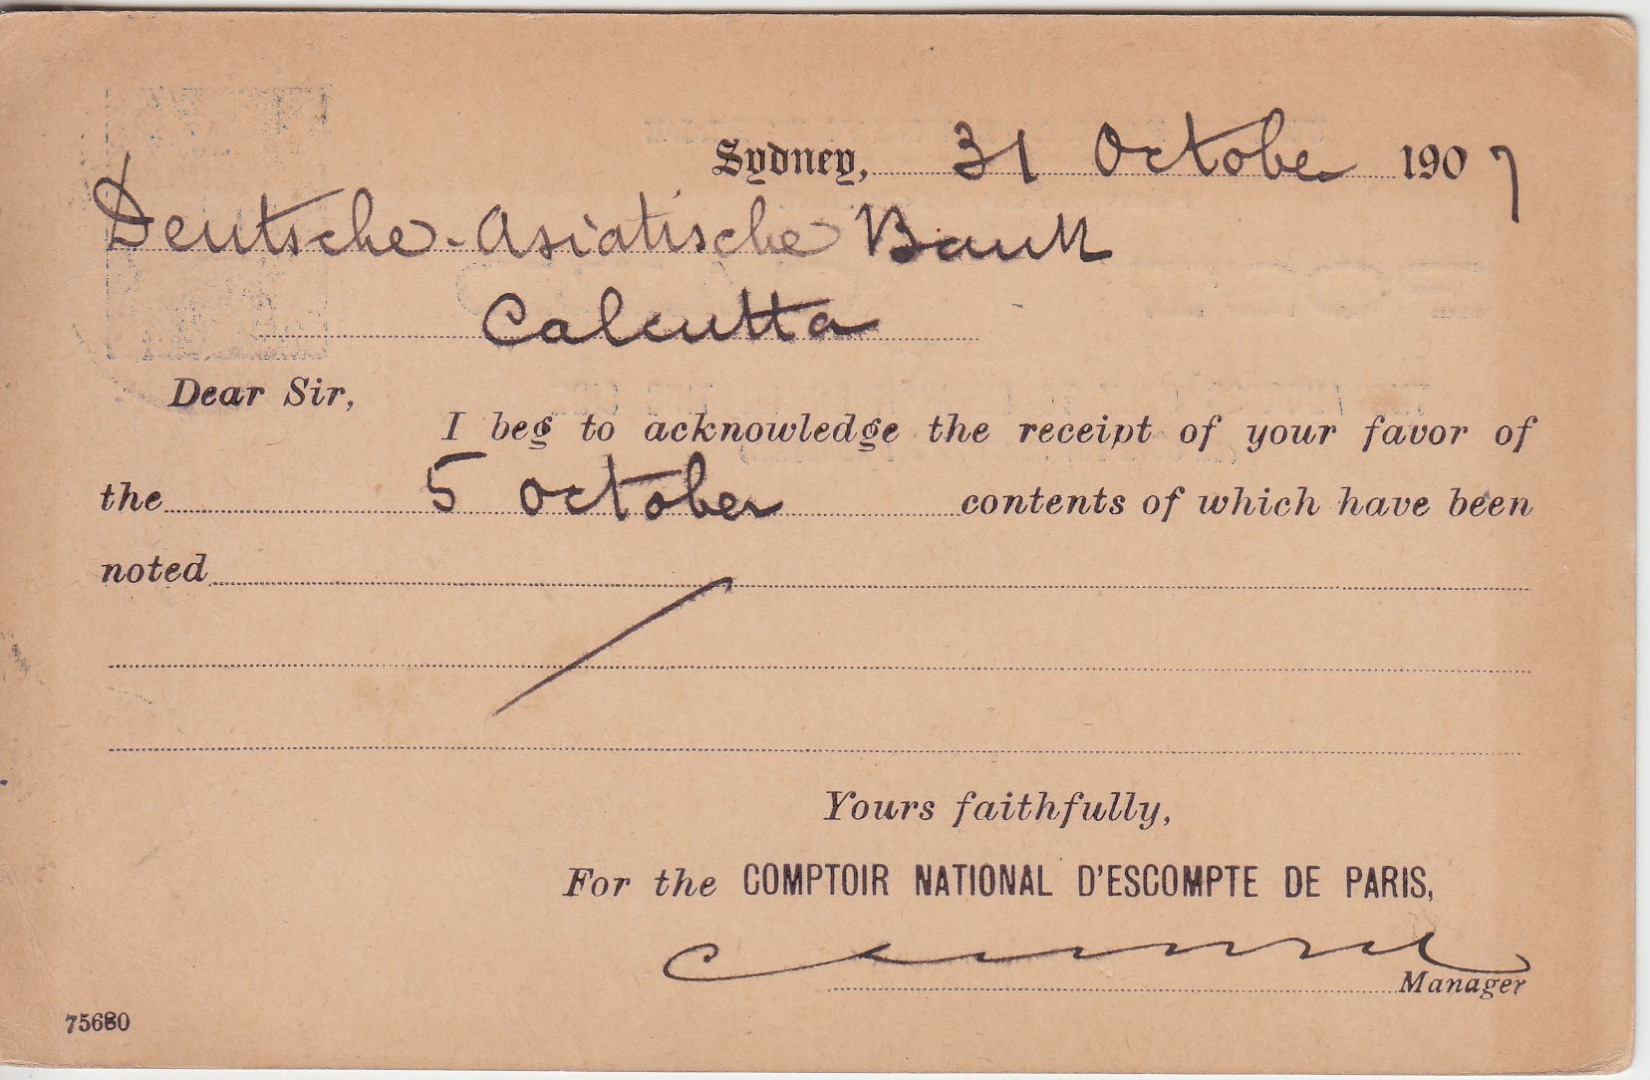 Sydney, 31 October 1907
Deutsche-Asiatische Bank
Calcutta
Dear Sir,
I beg to acknowledge the receipt of your favor of
the 5 October contents of which have been
noted
Yours faithfully,
For the COMPTOIR NATIONAL D'ESCOMPTE DE PARIS,
Manager
75680